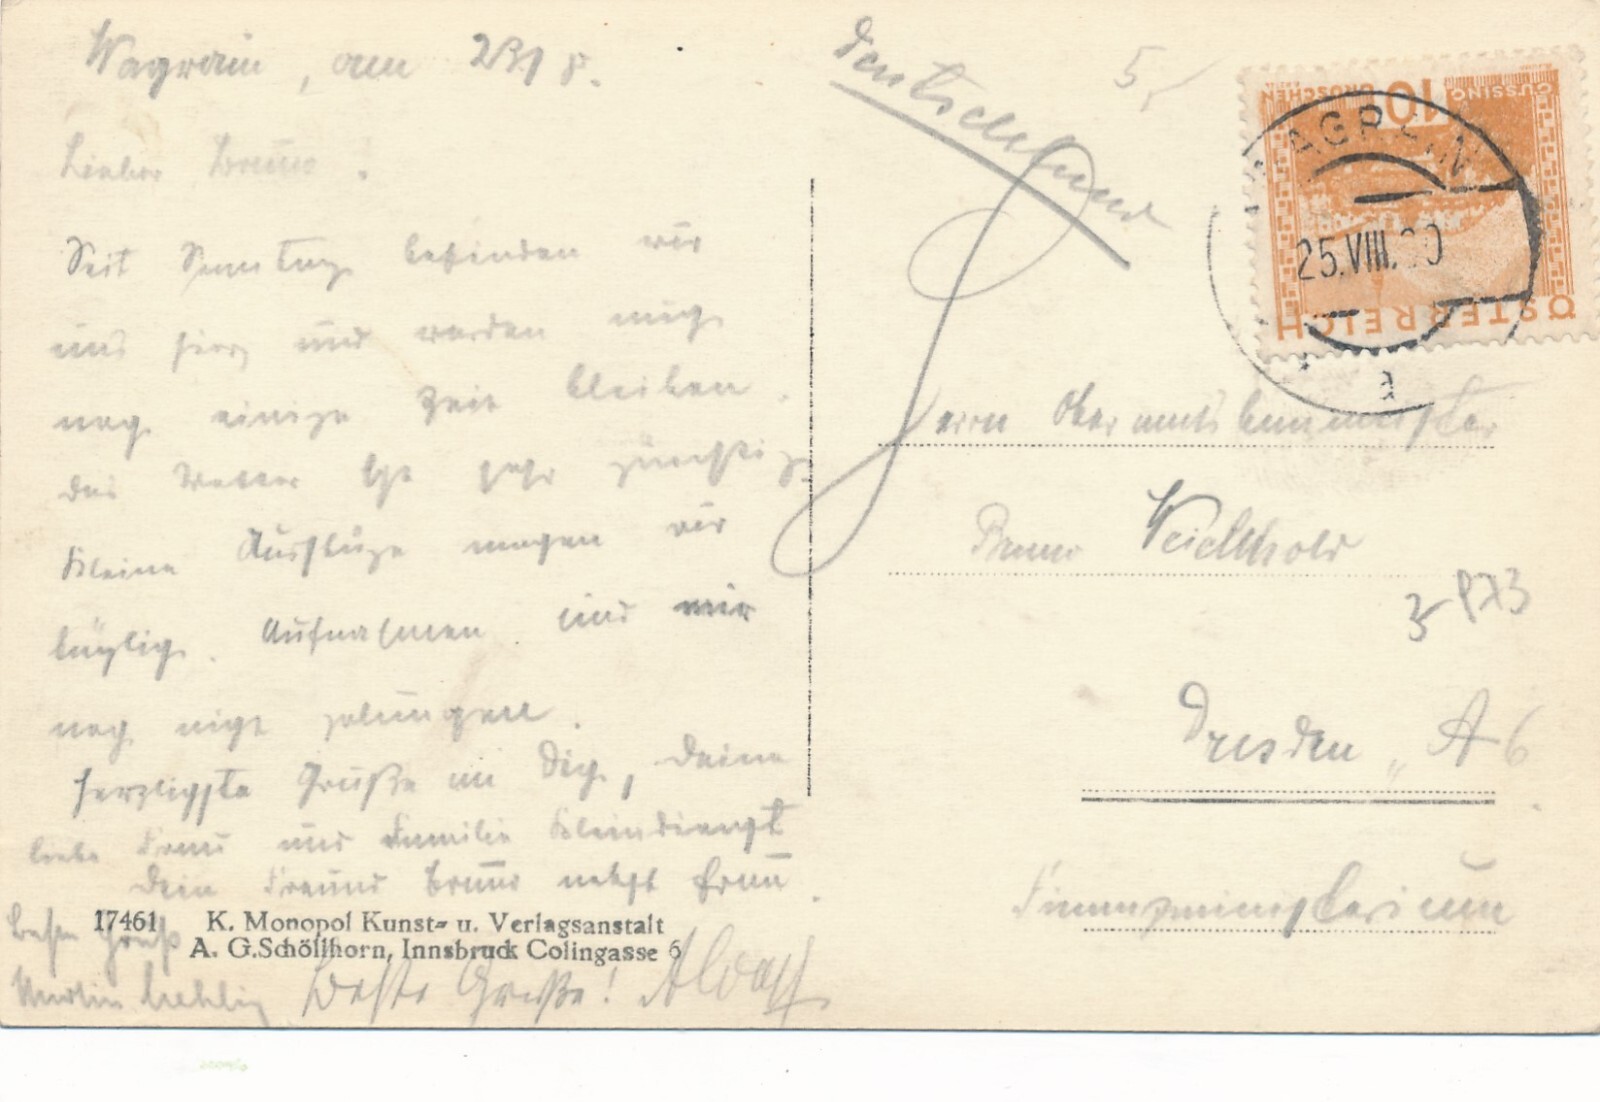 Wagrain, am 23/8.
Lieber Bruno!
Seit Sonntag befinden wir
uns hier und werden auch
noch einige Zeit bleiben.
das Wetter ist sehr günstig.
Kleine Ausflüge machen wir
täglich. Aufnahmen sind mir
noch nicht gelungen.
Herzlichste Grüße an Dich, Deine
liebe Frau und Familie Kleindienst
Dein Freund Bruno nebst Frau.
17461 K. Monopol Kunst- u. Verlagsanstalt
A. G. Schöllhorn, Innsbruck Colingasse 6
Besten Gruß
Martin
Beste Grüße!
Deutschland
5
10 GROSCHEN
GÜSSING
ÖSTERREICH
WAGRAIN
25.VIII.30
a
Herrn Oberamtsbaumeister
Bruno Weichhold
Dresden A 6.
Finanzministerium